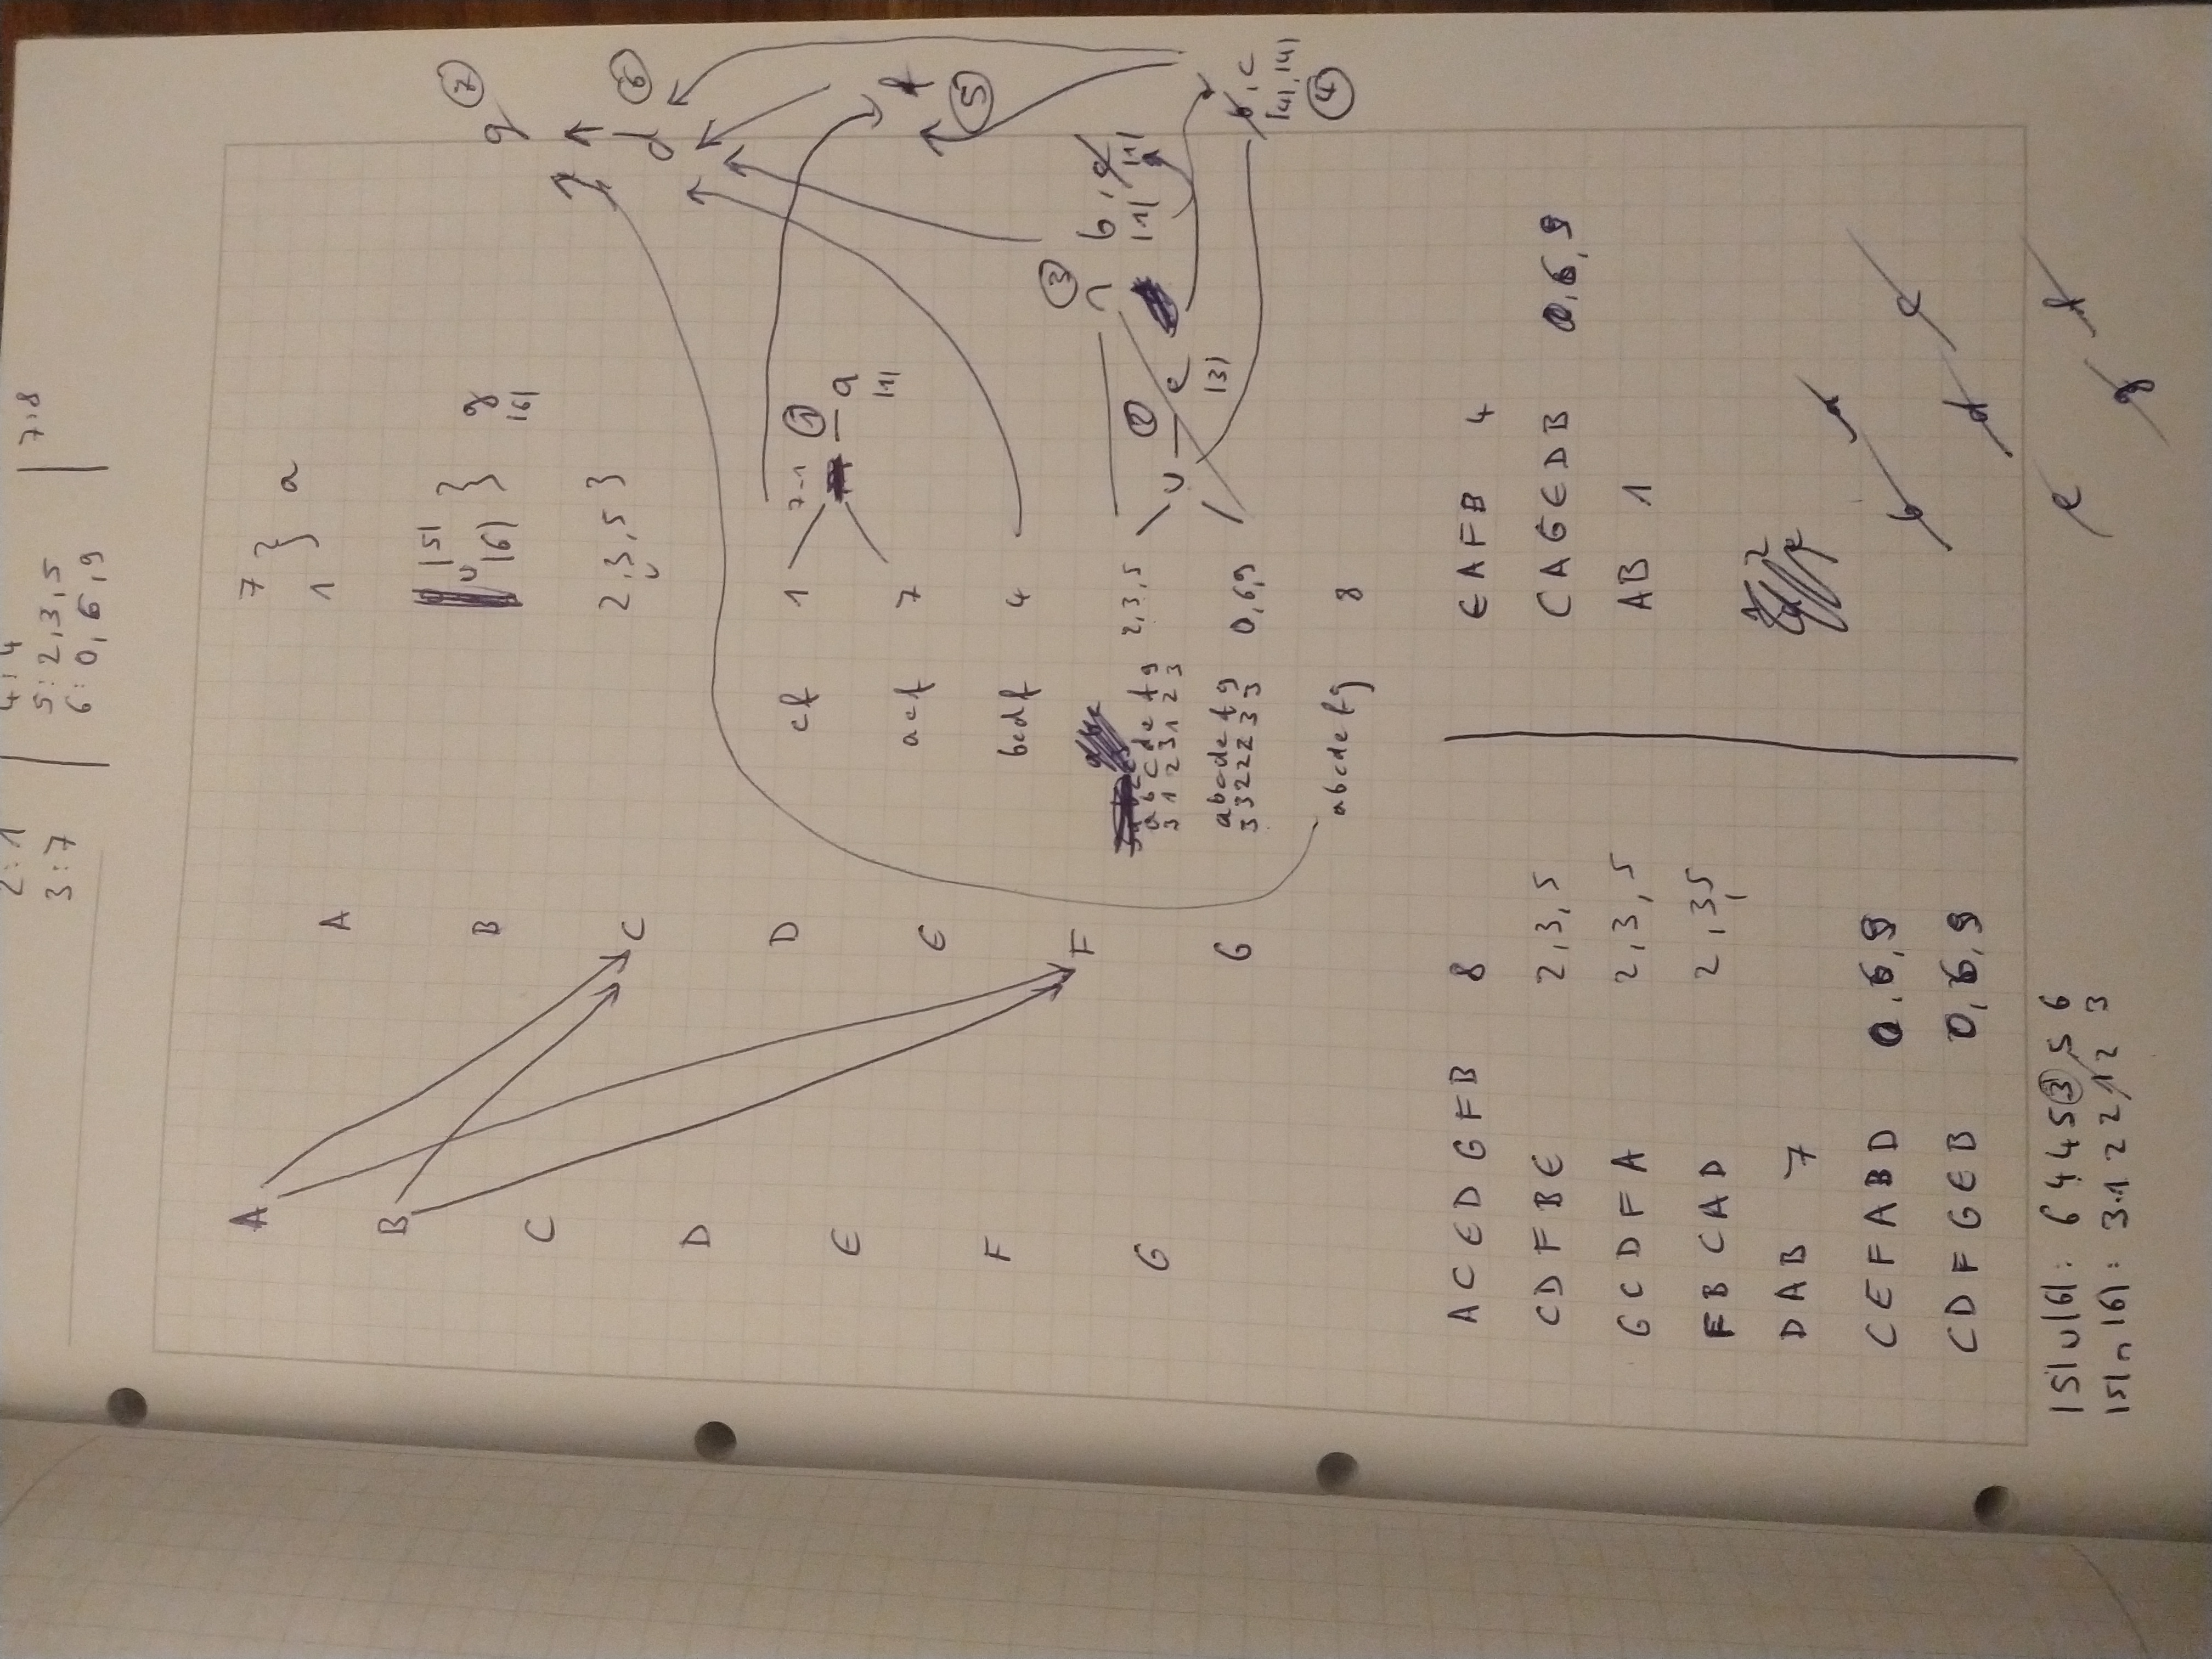 2:1
3:7
4:4
5:2,3,5
6:0,6,9
7:8
A
B
C
D
E
F
G
A
B
C
D
E
F
G
7
1
} a
|5|
∪
|6|
} g
|6|
2,3,5 }
∪
cf 1
7-1 ① a
|1|
acf 7
bcdf 4
abcdefg
3 1 2 3 1 2 3
2,3,5
abcdefg
3 3 2 2 2 3 3
0,6,9
∪ ② e
|3|
③ ∩ b,e
|1| |1|
b,c
|4|,|4|
④
f
⑤
d ⑥
g ⑦
abcdefg 8
ACEDGFB 8
CDFBE 2,3,5
GCDFA 2,3,5
FBCAD 2,3,5
DAB 7
CEFABD 0,6,9
CDFGEB 0,6,9
EAFB 4
CAGEDB 0,6,9
AB 1
1 2
d e
a
b c
d
e f
g
|5|∪|6|: 6 4 4 5 3 5 6
|5|∩|6|: 3 1 2 2 1 2 3